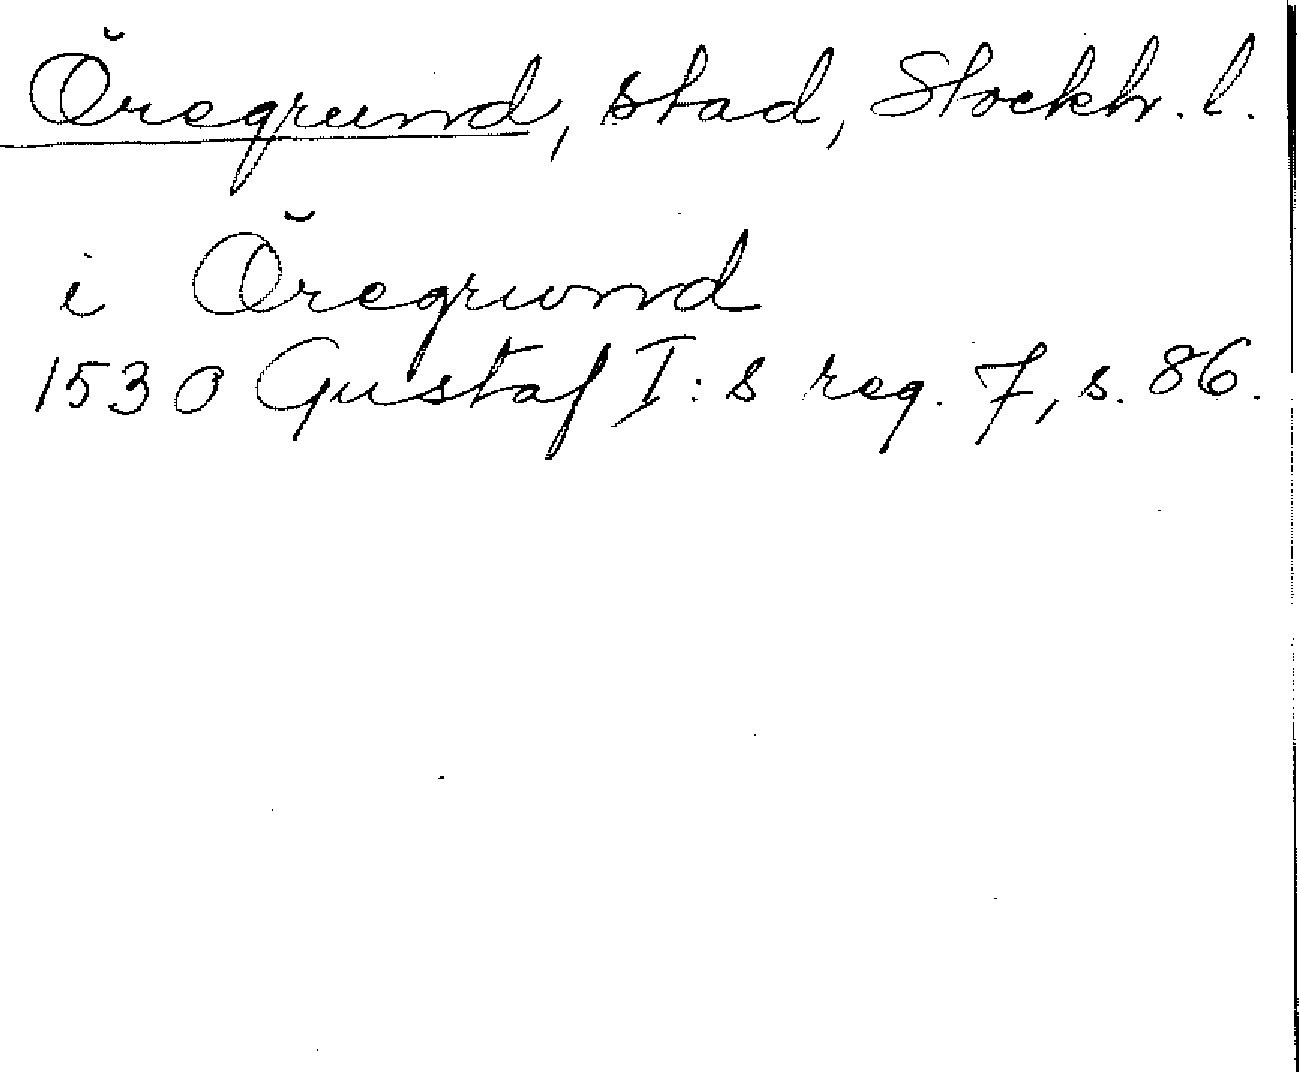 Öregrund, stad, Stockh. l.
i Öregrwnd
1530 Gustaf I:s reg. 7, s. 86.